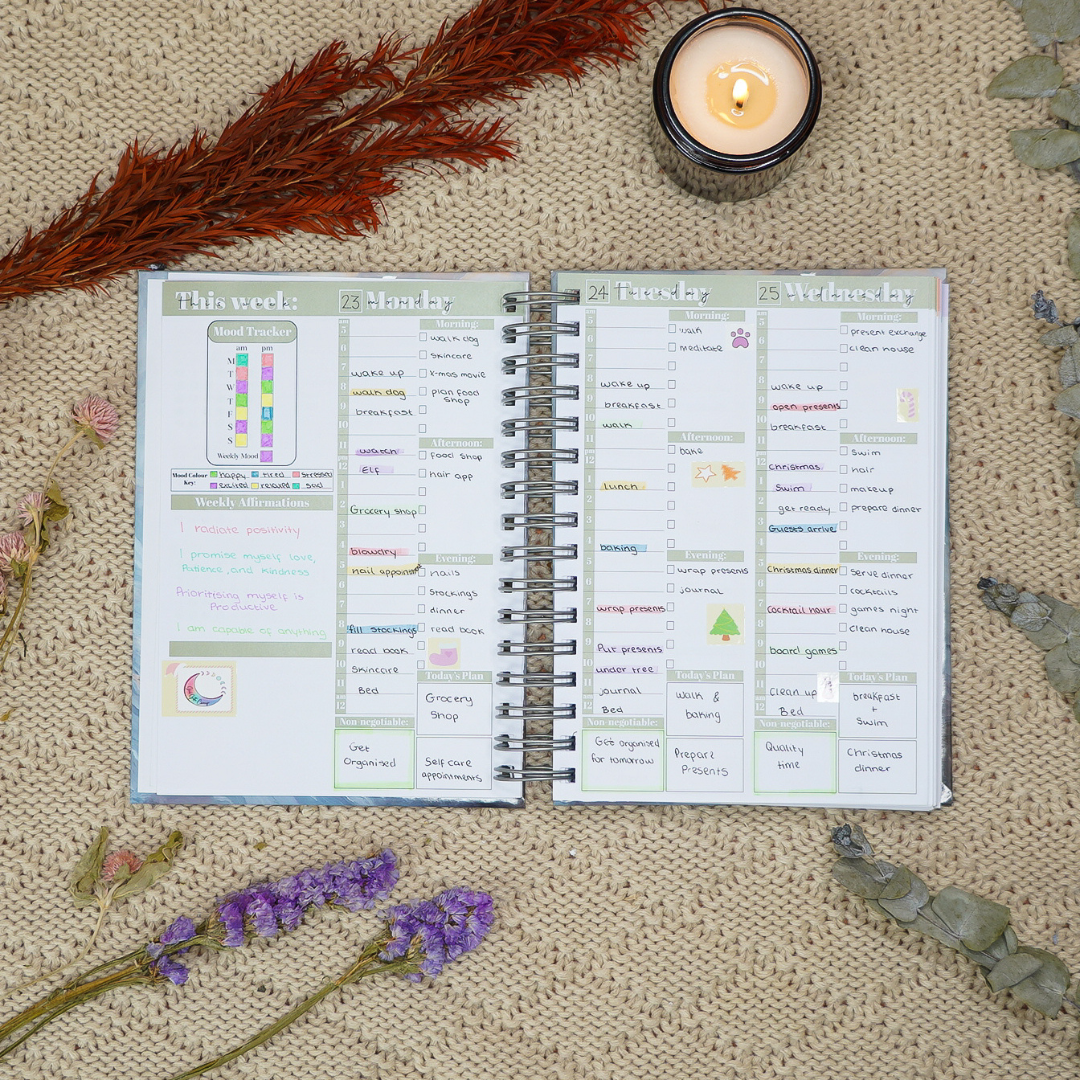 This week:
Mood Tracker
am pm
M
T
W
T
F
S
S
Weekly Mood
Mood Colour key:
happy tired stressed
excited relaxed sad
Weekly Affirmations
I radiate positivity
I promise myself love,
Patience, and kindness
Prioritising myself is
Productive
I am capable of anything
23 Monday
am
5
6
7 wake up
8 walk dog
9 breakfast
10
11 watch
12 Elf
1
2 Grocery shop
3
4 blowdry
5 nail appointment
6
7
8 fill stockings
9 read book
10 Skincare
11 Bed
12
Morning:
walk dog
skincare
X-mas movie
plan food
shop
Afternoon:
food shop
hair app
Evening:
nails
stockings
dinner
read book
Today's Plan
Grocery
Shop
Self care
appointments
Non-negotiable:
Get
Organised
24 Tuesday
am
5
6
7
8 wake up
9 breakfast
10 walk
11
12
1 lunch
2
3
4 baking
5
6
7 wrap presents
8
9 Put presents
10 under tree
11 journal
12 Bed
Morning:
walk
meditate
Afternoon:
bake
Evening:
wrap presents
journal
Today's Plan
Walk &
baking
Prepare
Presents
Non-negotiable:
Get organised
for tomorrow
25 Wednesday
am
5
6
7
8 wake up
9 open presents
10 breakfast
11
12 christmas
1 Swim
2 get ready
3 Guests arrive
4
5 Christmas dinner
6
7 Cocktail hour
8
9 board games
10
11 Clean up
12 Bed
Morning:
present exchange
clean house
Afternoon:
Swim
hair
makeup
prepare dinner
Evening:
serve dinner
cocktails
games night
clean house
Today's Plan
breakfast
+
Swim
Christmas
dinner
Non-negotiable:
Quality
time